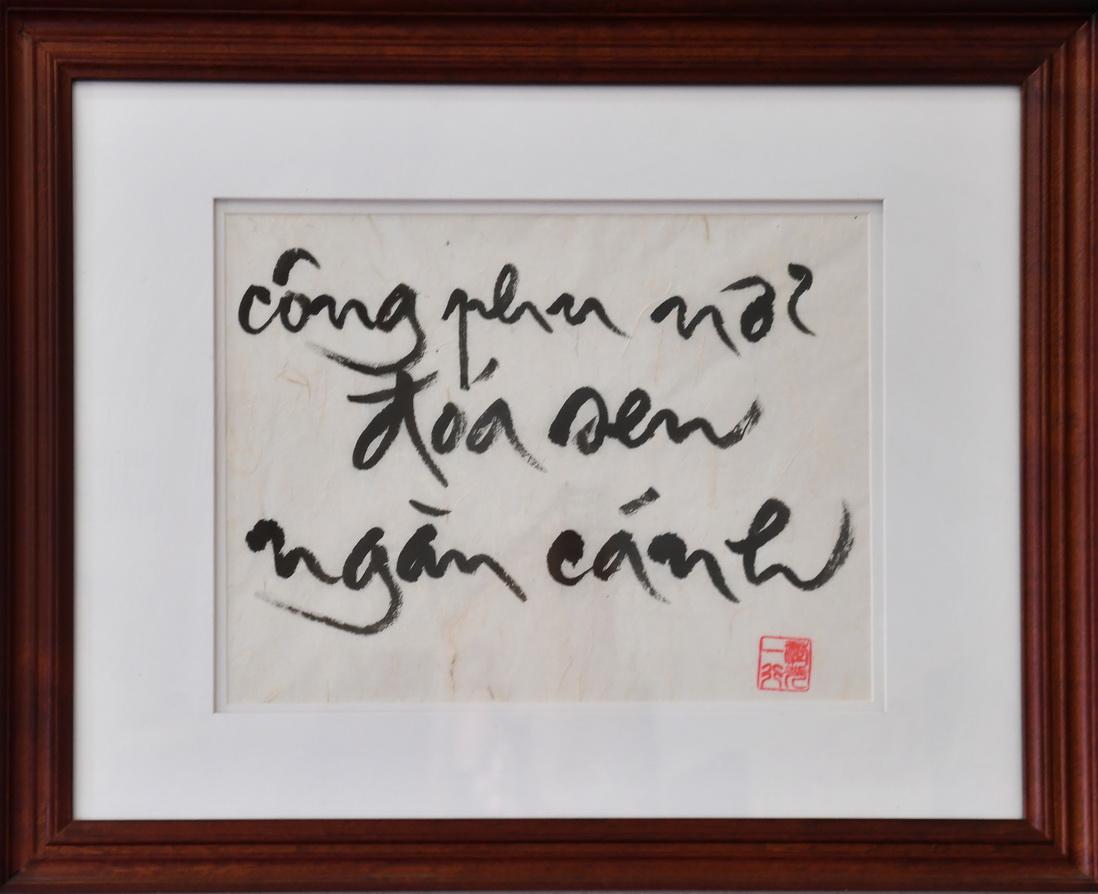 công phu nở
đoá sen
ngàn cánh
一行